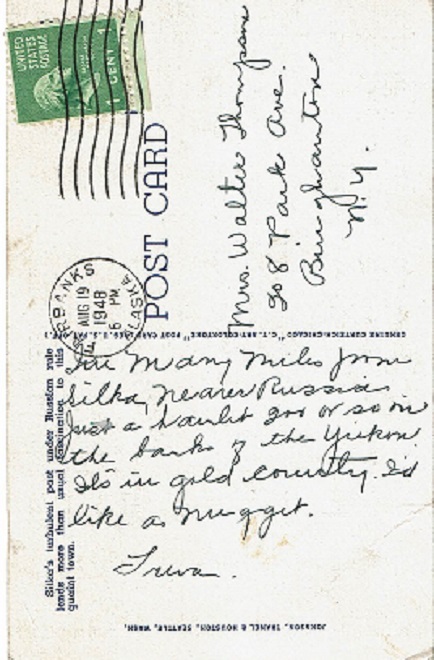 UNITED
STATES
POSTAGE
1 CENT 1
POST CARD
FAIRBANKS
AUG 19
6 PM
1948
ALASKA
Mrs. Walter Thompson
208 Park Ave.
Binghamton
N.Y.
GENUINE CURTEICH-CHICAGO "C.T. ART-COLORTONE" POST CARD
Sitka's turbulent past under Russian rule
lends more than usual fascination to this
quaint town.
Many Miles from
Sitka, nearer Russia.
Just a hamlet 200 or so on
the banks of the Yukon
It's in gold country. I'd
like a nugget.
Treva.
JOHNSON, HOUSTON, SEATTLE, WASH.